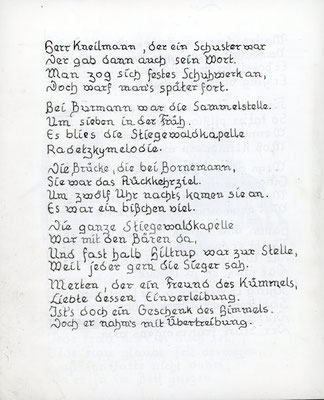 Herr Kneilmann, der ein Schuster war
Der gab dann auch sein Wort.
Man zog sich festes Schuhwerk an,
Doch warf man's später fort.
Bei Burmann war die Sammelstelle.
Um sieben in der Früh.
Es blies die Stiegewaldkapelle
Radetzkymelodie.
Die Brücke, die bei Bornemann,
Sie war das Rückkehrziel.
Um zwölf Uhr nachts kamen sie an.
Es war ein bißchen viel.
Die ganze Stiegewaldkapelle
War mit den Bären da,
Und fast halb Hiltrup war zur Stelle,
Weil jeder gern die Sieger sah.
Merten, der ein Freund des Kümmels,
Liebte dessen Einverleibung.
Ist's doch ein Geschenk des Himmels.
Doch er nahm's mit Übertreibung.